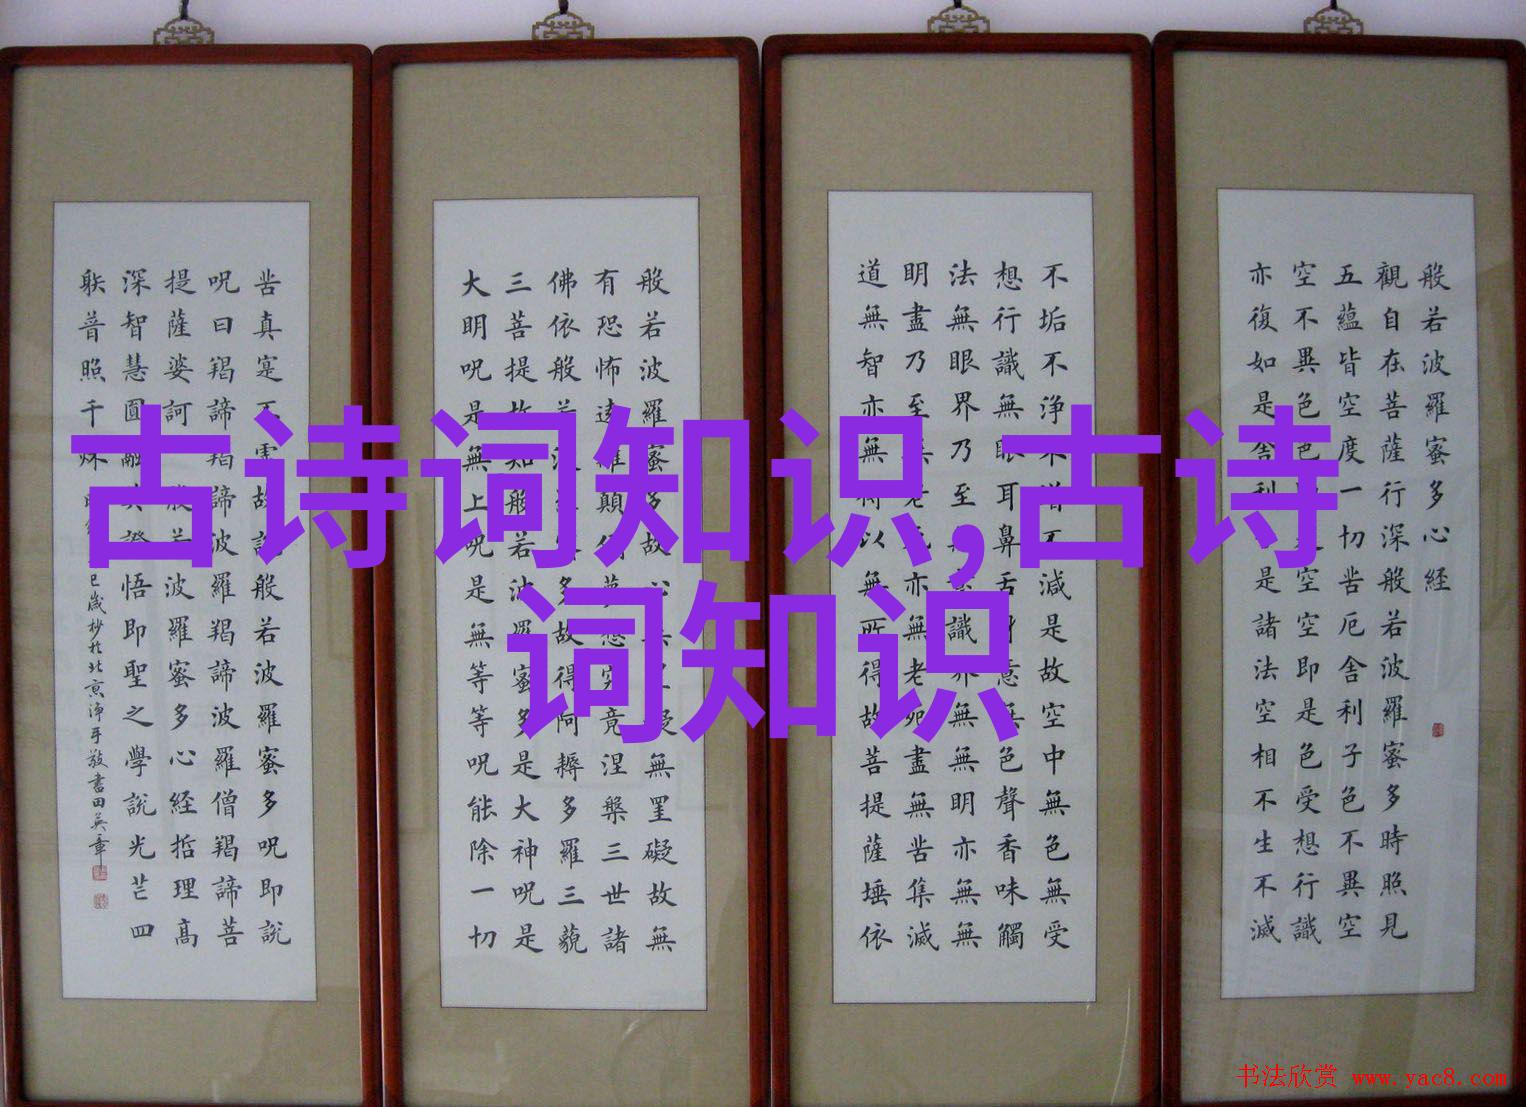 古诗词知识,古诗
词知识
般若波羅蜜多心経
觀自在菩薩行深般若波羅蜜多時照見
五蘊皆空度一切苦厄舍利子色不異空
空不異色色空空即是色受想行識
亦復如是舍利是諸法空相不生不滅
不垢不淨不增不減是故空中無色無受
想行識無眼耳鼻舌身意無色聲香味觸
法無眼界乃至無意識界無無明亦無無
明盡乃至無老死亦無老死盡無苦集滅
道無智亦無得以無所得故菩提薩埵依
般若波羅蜜多故心無罣礙無罣礙故無
有恐怖遠離顛倒夢想究竟涅槃三世諸
佛依般若波羅蜜多故得阿耨多羅三藐
三菩提故知般若波羅蜜多是大神呪是
大明呪是無上呪是無等等呪能除一切
苦真寔不虛故說般若波羅蜜多呪即說
呪曰羯諦羯諦波羅羯諦波羅僧羯諦菩
提薩婆訶般若波羅蜜多心経哲理高
深智慧圓融證悟即聖之學說光芒四
射普照千秋巳歲杪於北京淨手敬書田英章
书法欣赏 www.yac8.com